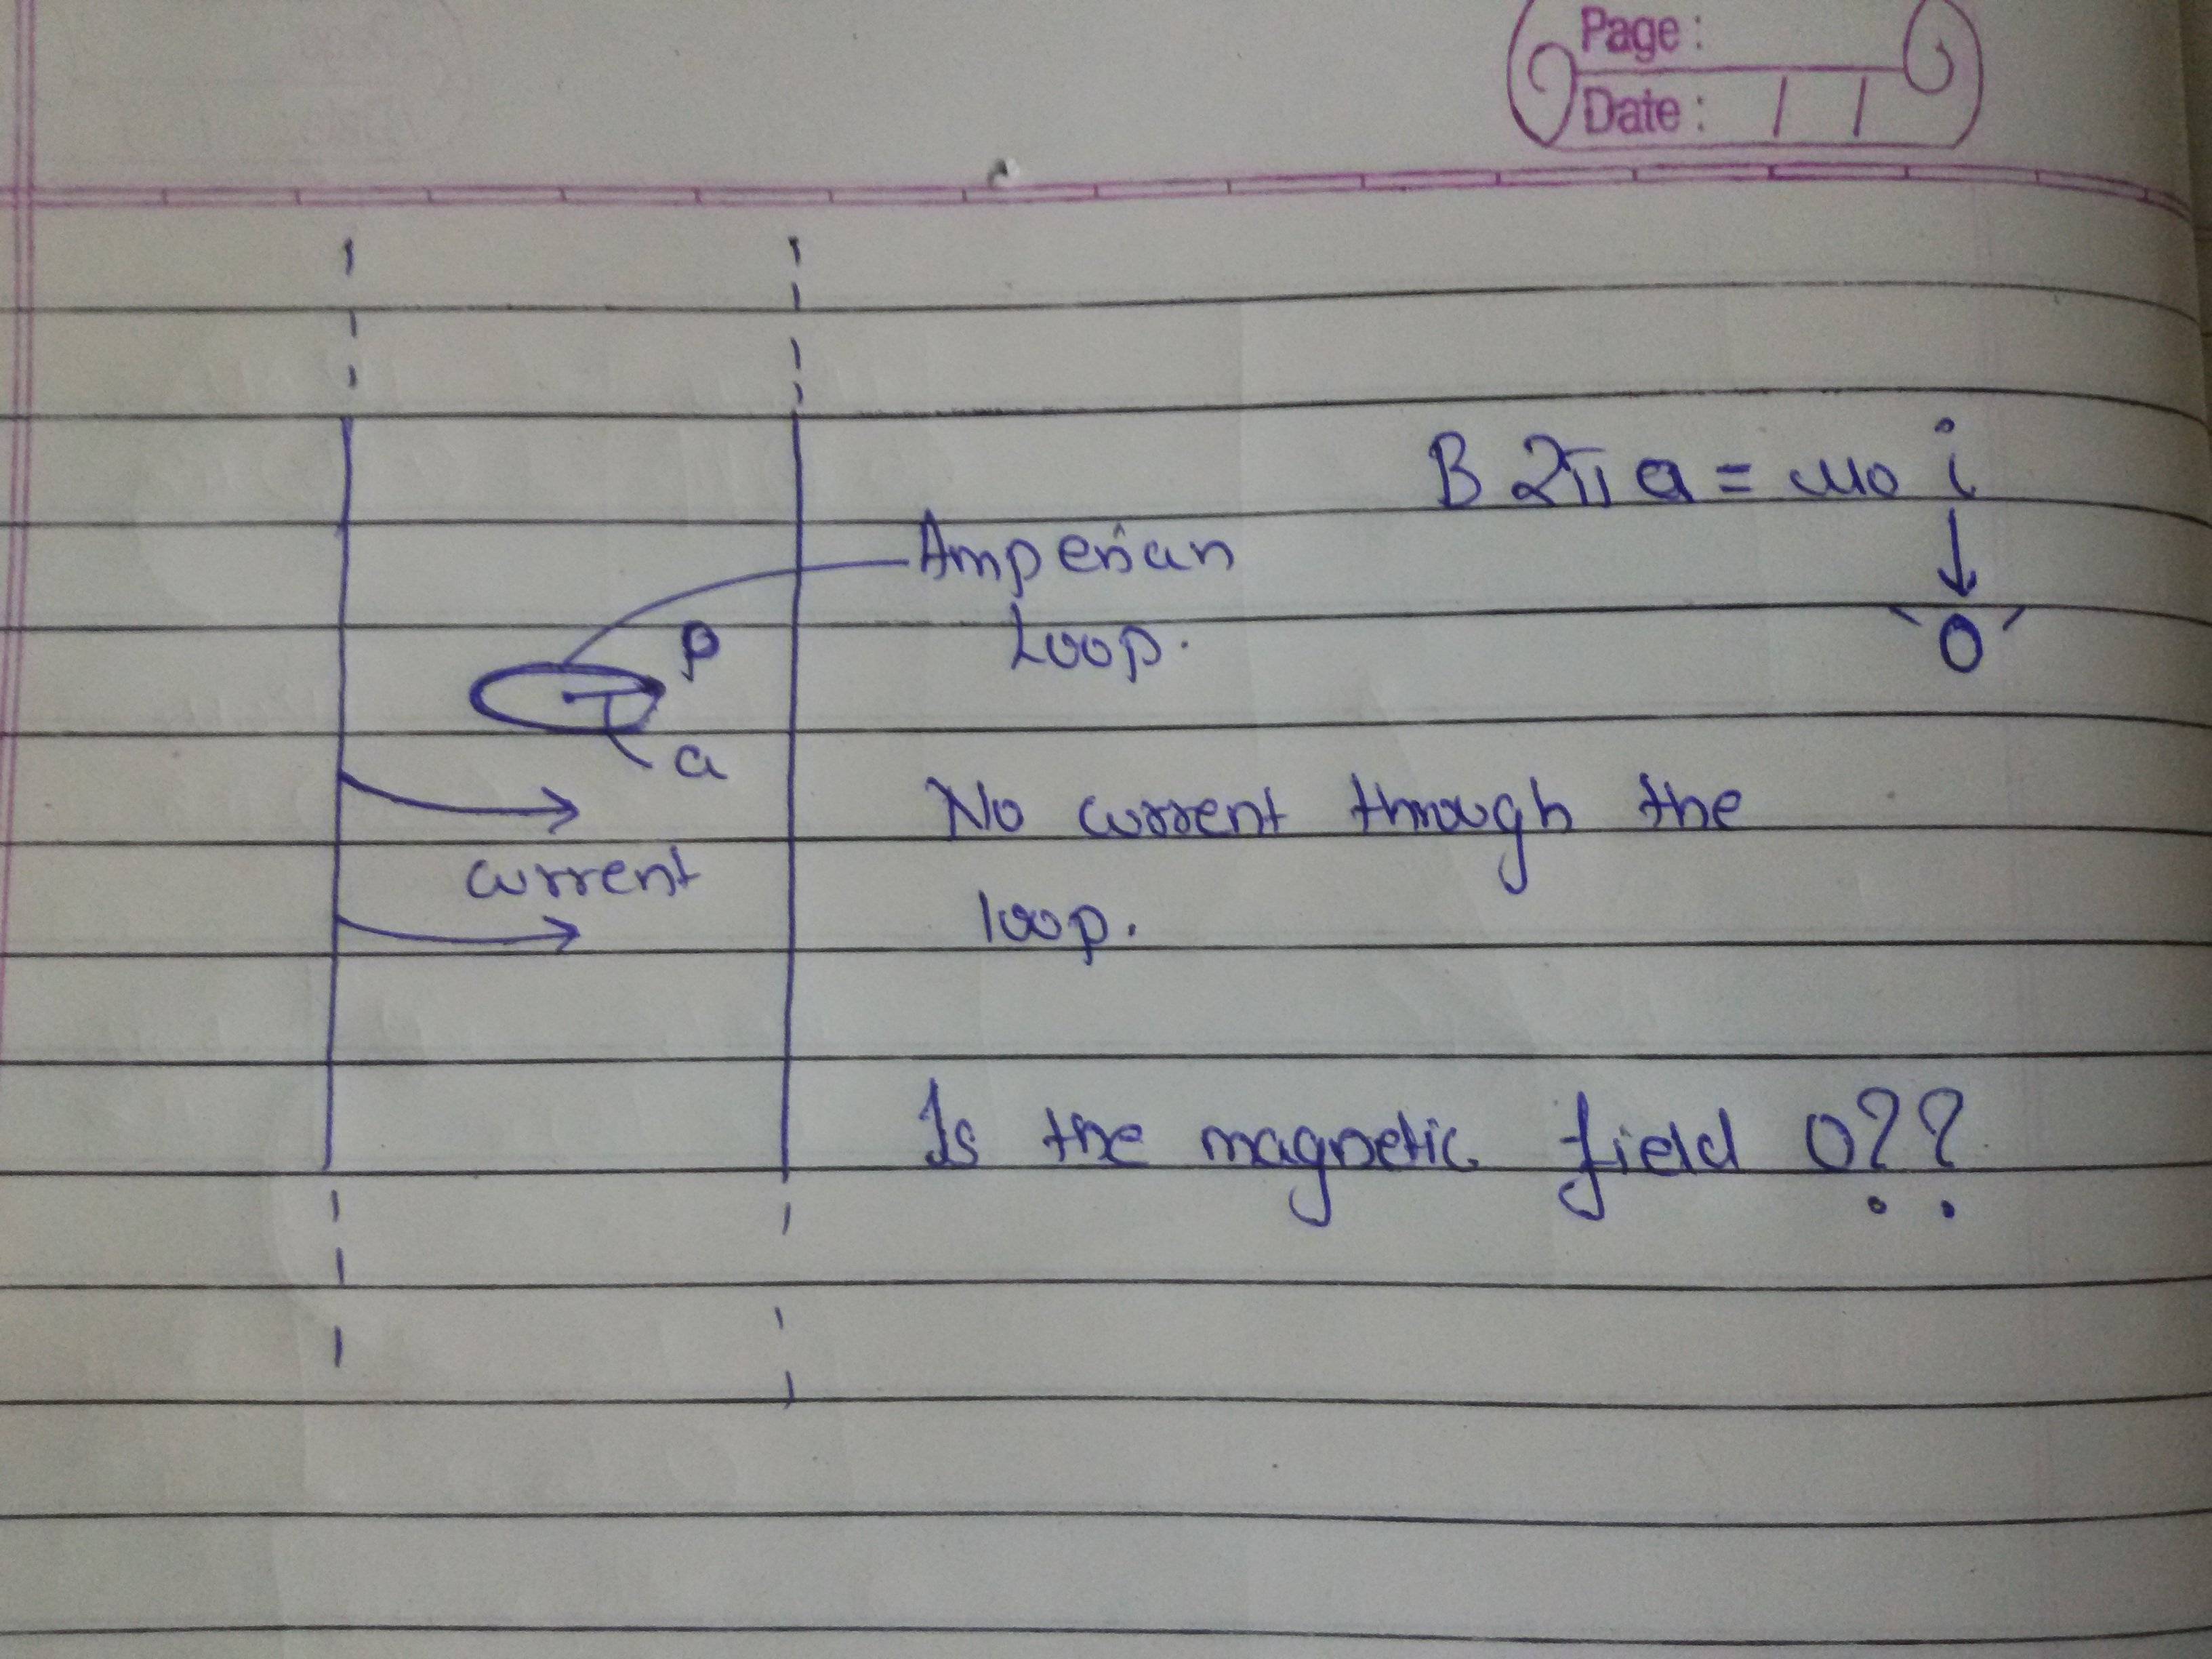 Page :
Date : / /
B 2π a = μ0 i
Amperian
Loop.
0
P
a
No current through the
current
loop.
Is the magnetic field 0??